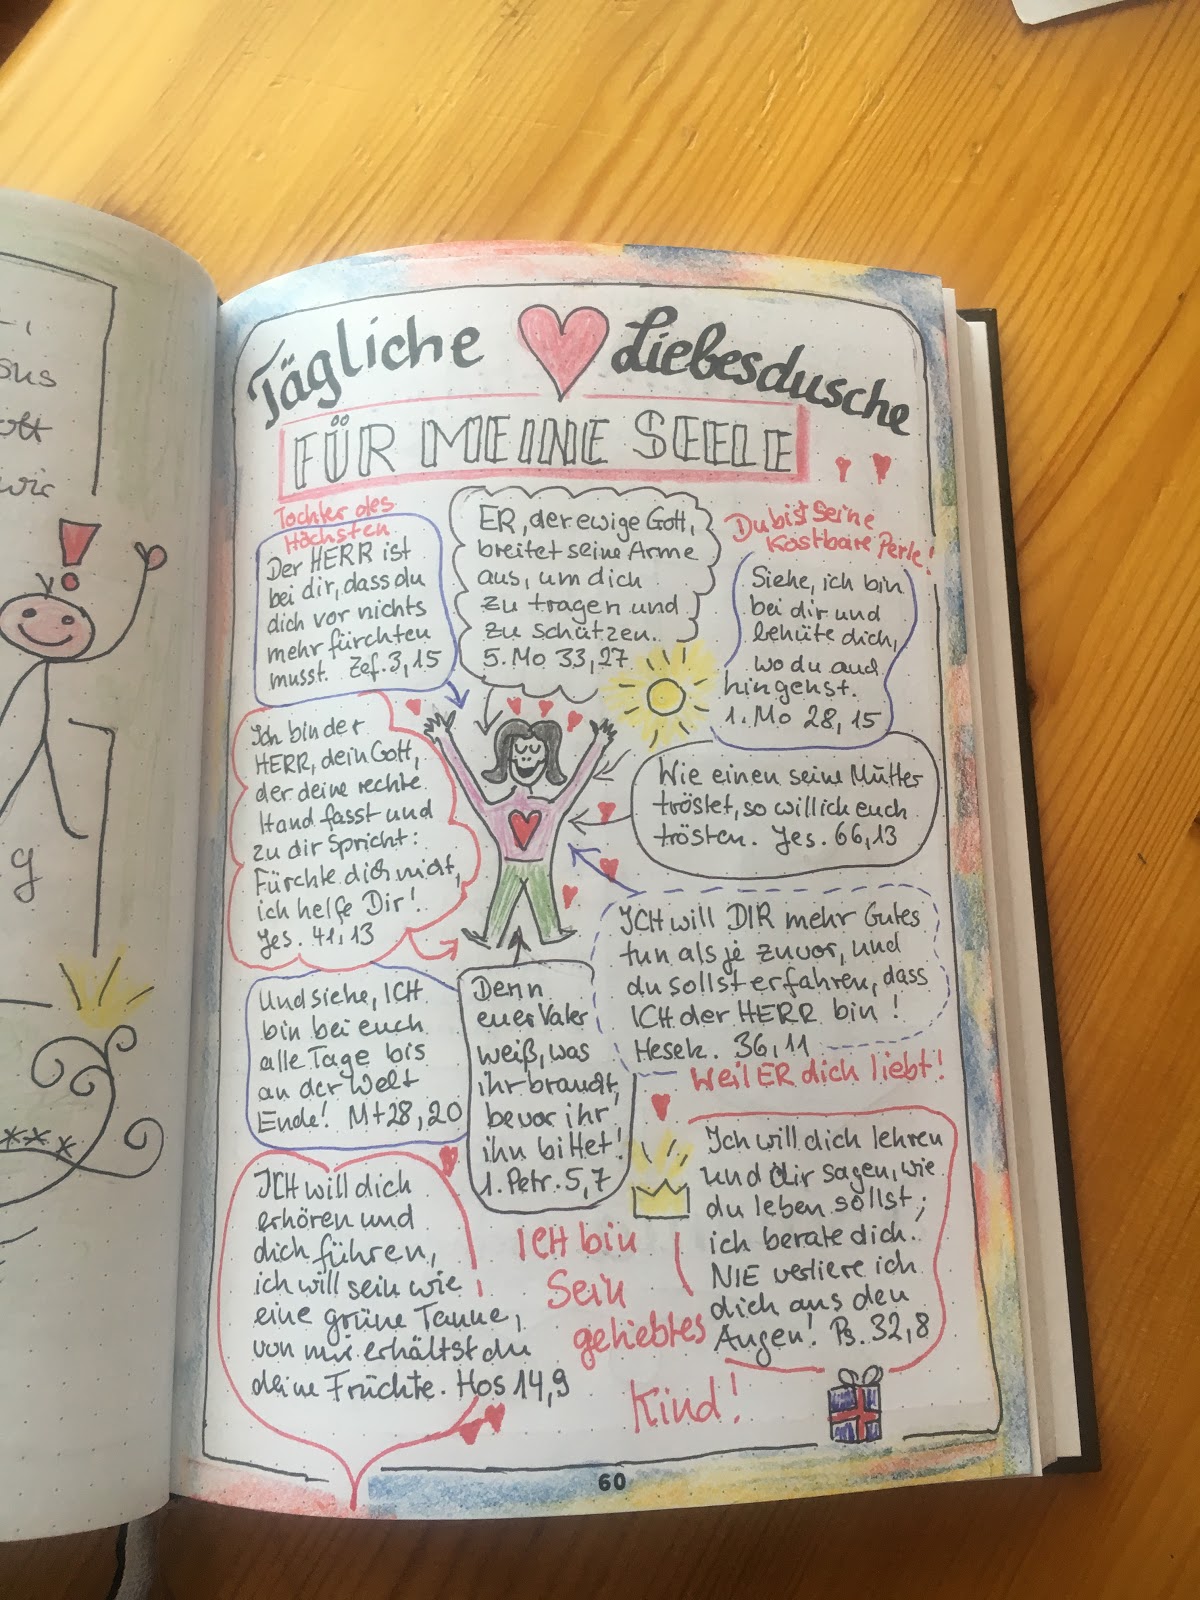 sus
wir
g
Tägliche Liebesdusche
FÜR MEINE SEELE
Tochter des
Höchsten
Der HERR ist
bei dir, dass du
dich vor nichts
mehr fürchten
musst. Zef. 3,15
ER, der ewige Gott,
breitet seine Arme
aus, um dich
zu tragen und
zu schützen.
5. Mo 33,27
Du bist Seine
kostbare Perle!
Siehe, ich bin
bei dir und
behüte dich,
wo du auch
hingehst.
1. Mo 28,15
Ich bin der
HERR, dein Gott,
der deine rechte
Hand fasst und
zu dir spricht:
Fürchte dich nicht,
ich helfe Dir!
Jes. 41,13
Wie einen seine Mutter
tröstet, so will ich euch
trösten. Jes. 66,13
ICH will DIR mehr Gutes
tun als je zuvor, und
du sollst erfahren, dass
ICH der HERR bin!
Hesek. 36,11
Weil ER dich liebt!
Und siehe, ICH
bin bei euch
alle Tage bis
an der Welt
Ende! Mt 28,20
Denn
euer Vater
weiß, was
ihr braucht,
bevor ihr
ihn bittet!
1. Petr. 5,7
ICH will dich
erhören und
dich führen,
ich will sein wie
eine grüne Tanne,
von mir erhältst du
deine Früchte. Hos 14,9
ICH bin
Sein
geliebtes
Kind!
Ich will dich lehren
und dir sagen, wie
du leben sollst;
ich berate dich.
NIE verliere ich
dich aus den
Augen! Ps. 32,8
60